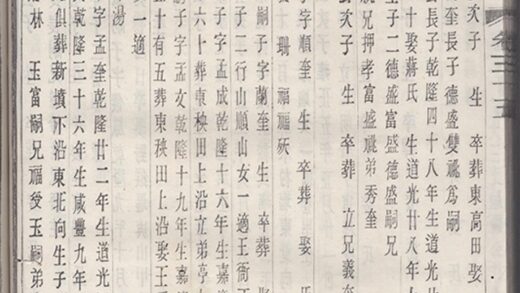 卷三十五
次子 生 卒葬東高田娶
奎長子德盛雙祧爲嗣
長子乾隆四十八年生道光
十娶蔣氏 生道光廿八年十
生子二德富盛德盛嗣兄
兄押孝富盛祧弟秀奎
子 生 卒葬 立兄義奎
子字順奎 生 卒葬 娶 氏
珊 福
嗣子字蘭奎 生 卒葬
二行山順山女一適王衙
子字孟成乾隆十六年生嘉
六十葬東秧田上沿立弟亭
子字孟女乾隆十九年生嘉
十有五葬東秧田上沿娶王
一適
湯
字孟奎乾隆廿二年生道光
乾隆三十六年生咸豐九年
俱葬新墳下沿東北向生子
林 玉富嗣兄福受玉嗣弟